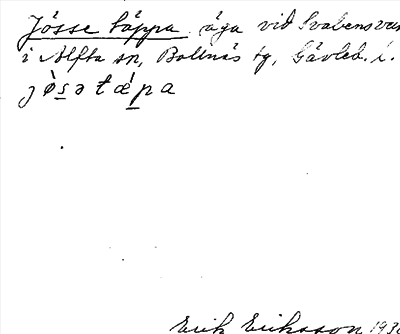 Jösse täppa äga vid Svabensver
i Alfta sn, Bollnäs tg, Gävleb. l.
jøs̲ətæp̲a
Erik Eriksson 193